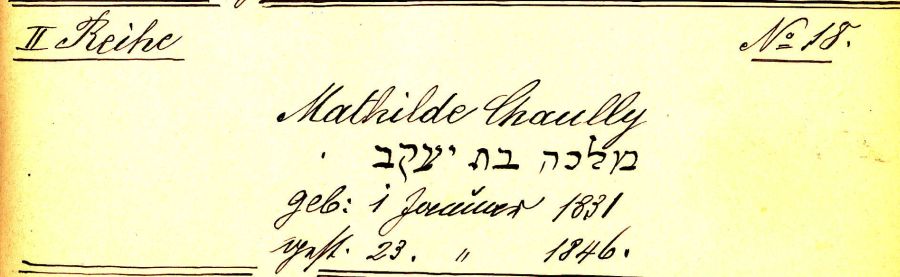 II Reihe
No 18.
Mathilde Chaully
מלכה בת יעקב
geb: i Januar 1831
gest. 23. " 1846.